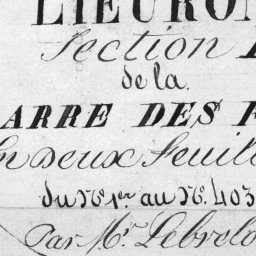 LIEURON
Section
de la
ARRE DES F
En Deux feuill
du N° 1er au N° 403
Par Mr. Lebreto